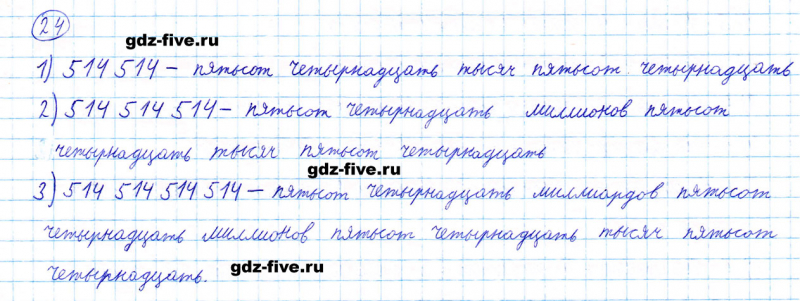 24
gdz-five.ru
1) 514 514 – пятьсот четырнадцать тысяч пятьсот четырнадцать
2) 514 514 514 – пятьсот четырнадцать миллионов пятьсот
четырнадцать тысяч пятьсот четырнадцать
gdz-five.ru
3) 514 514 514 514 – пятьсот четырнадцать миллиардов пятьсот
четырнадцать миллионов пятьсот четырнадцать тысяч пятьсот
четырнадцать.
gdz-five.ru